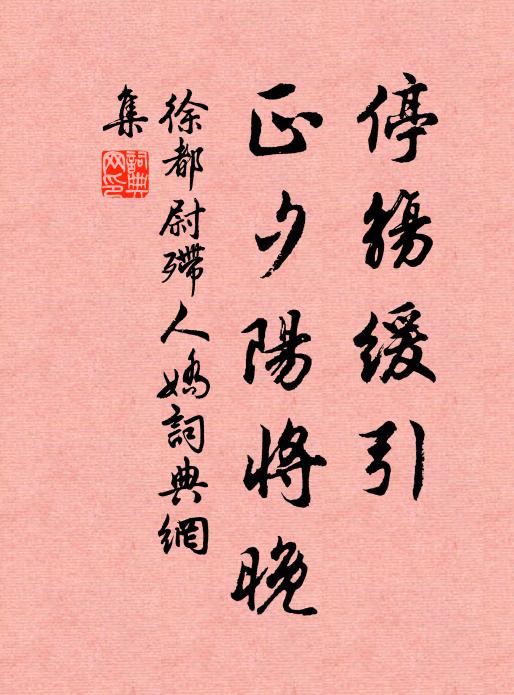 停觴緩引
正夕陽將晚
徐都尉殢人嬌詞典網
集
詞典
网印